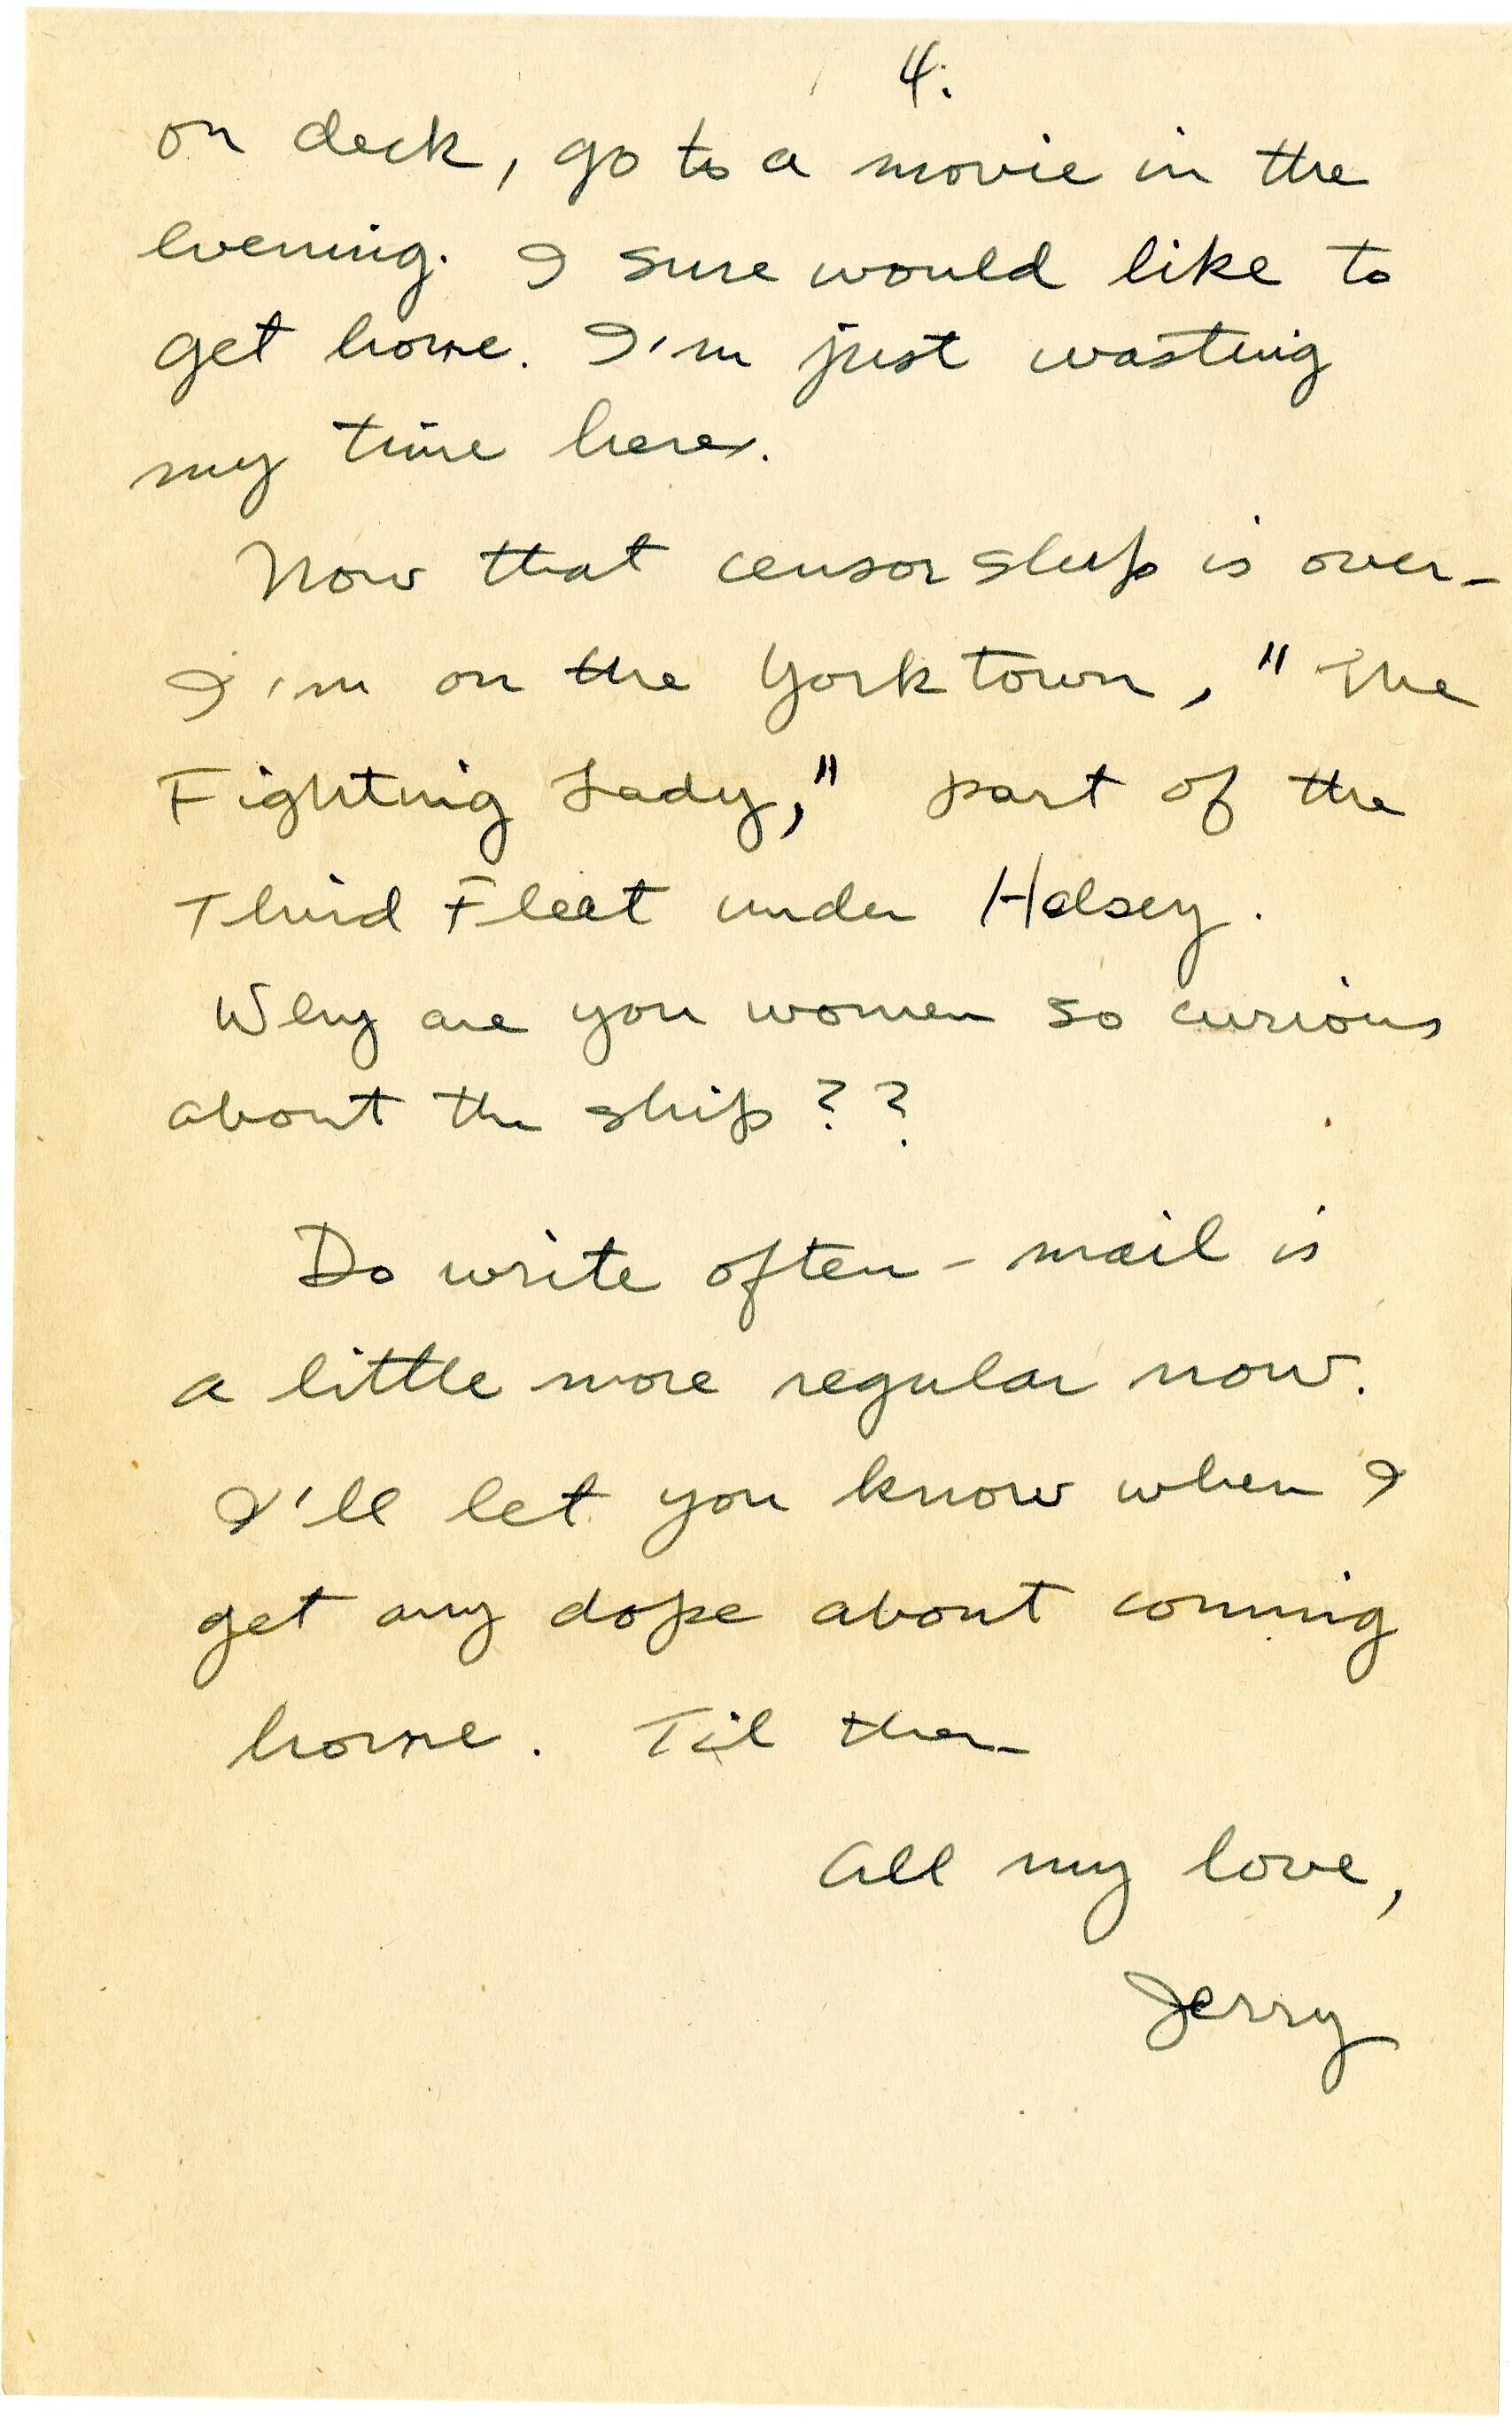 4.
on deck, go to a movie in the
evening. I sure would like to
get home. I'm just wasting
my time here.
Now that censorship is over-
I'm on the Yorktown, "The
Fighting Lady," part of the
Third Fleet under Halsey.
Why are you women so curious
about the ship??
Do write often - mail is
a little more regular now.
I'll let you know when I
get any dope about coming
home. Til then
All my love,
Jerry